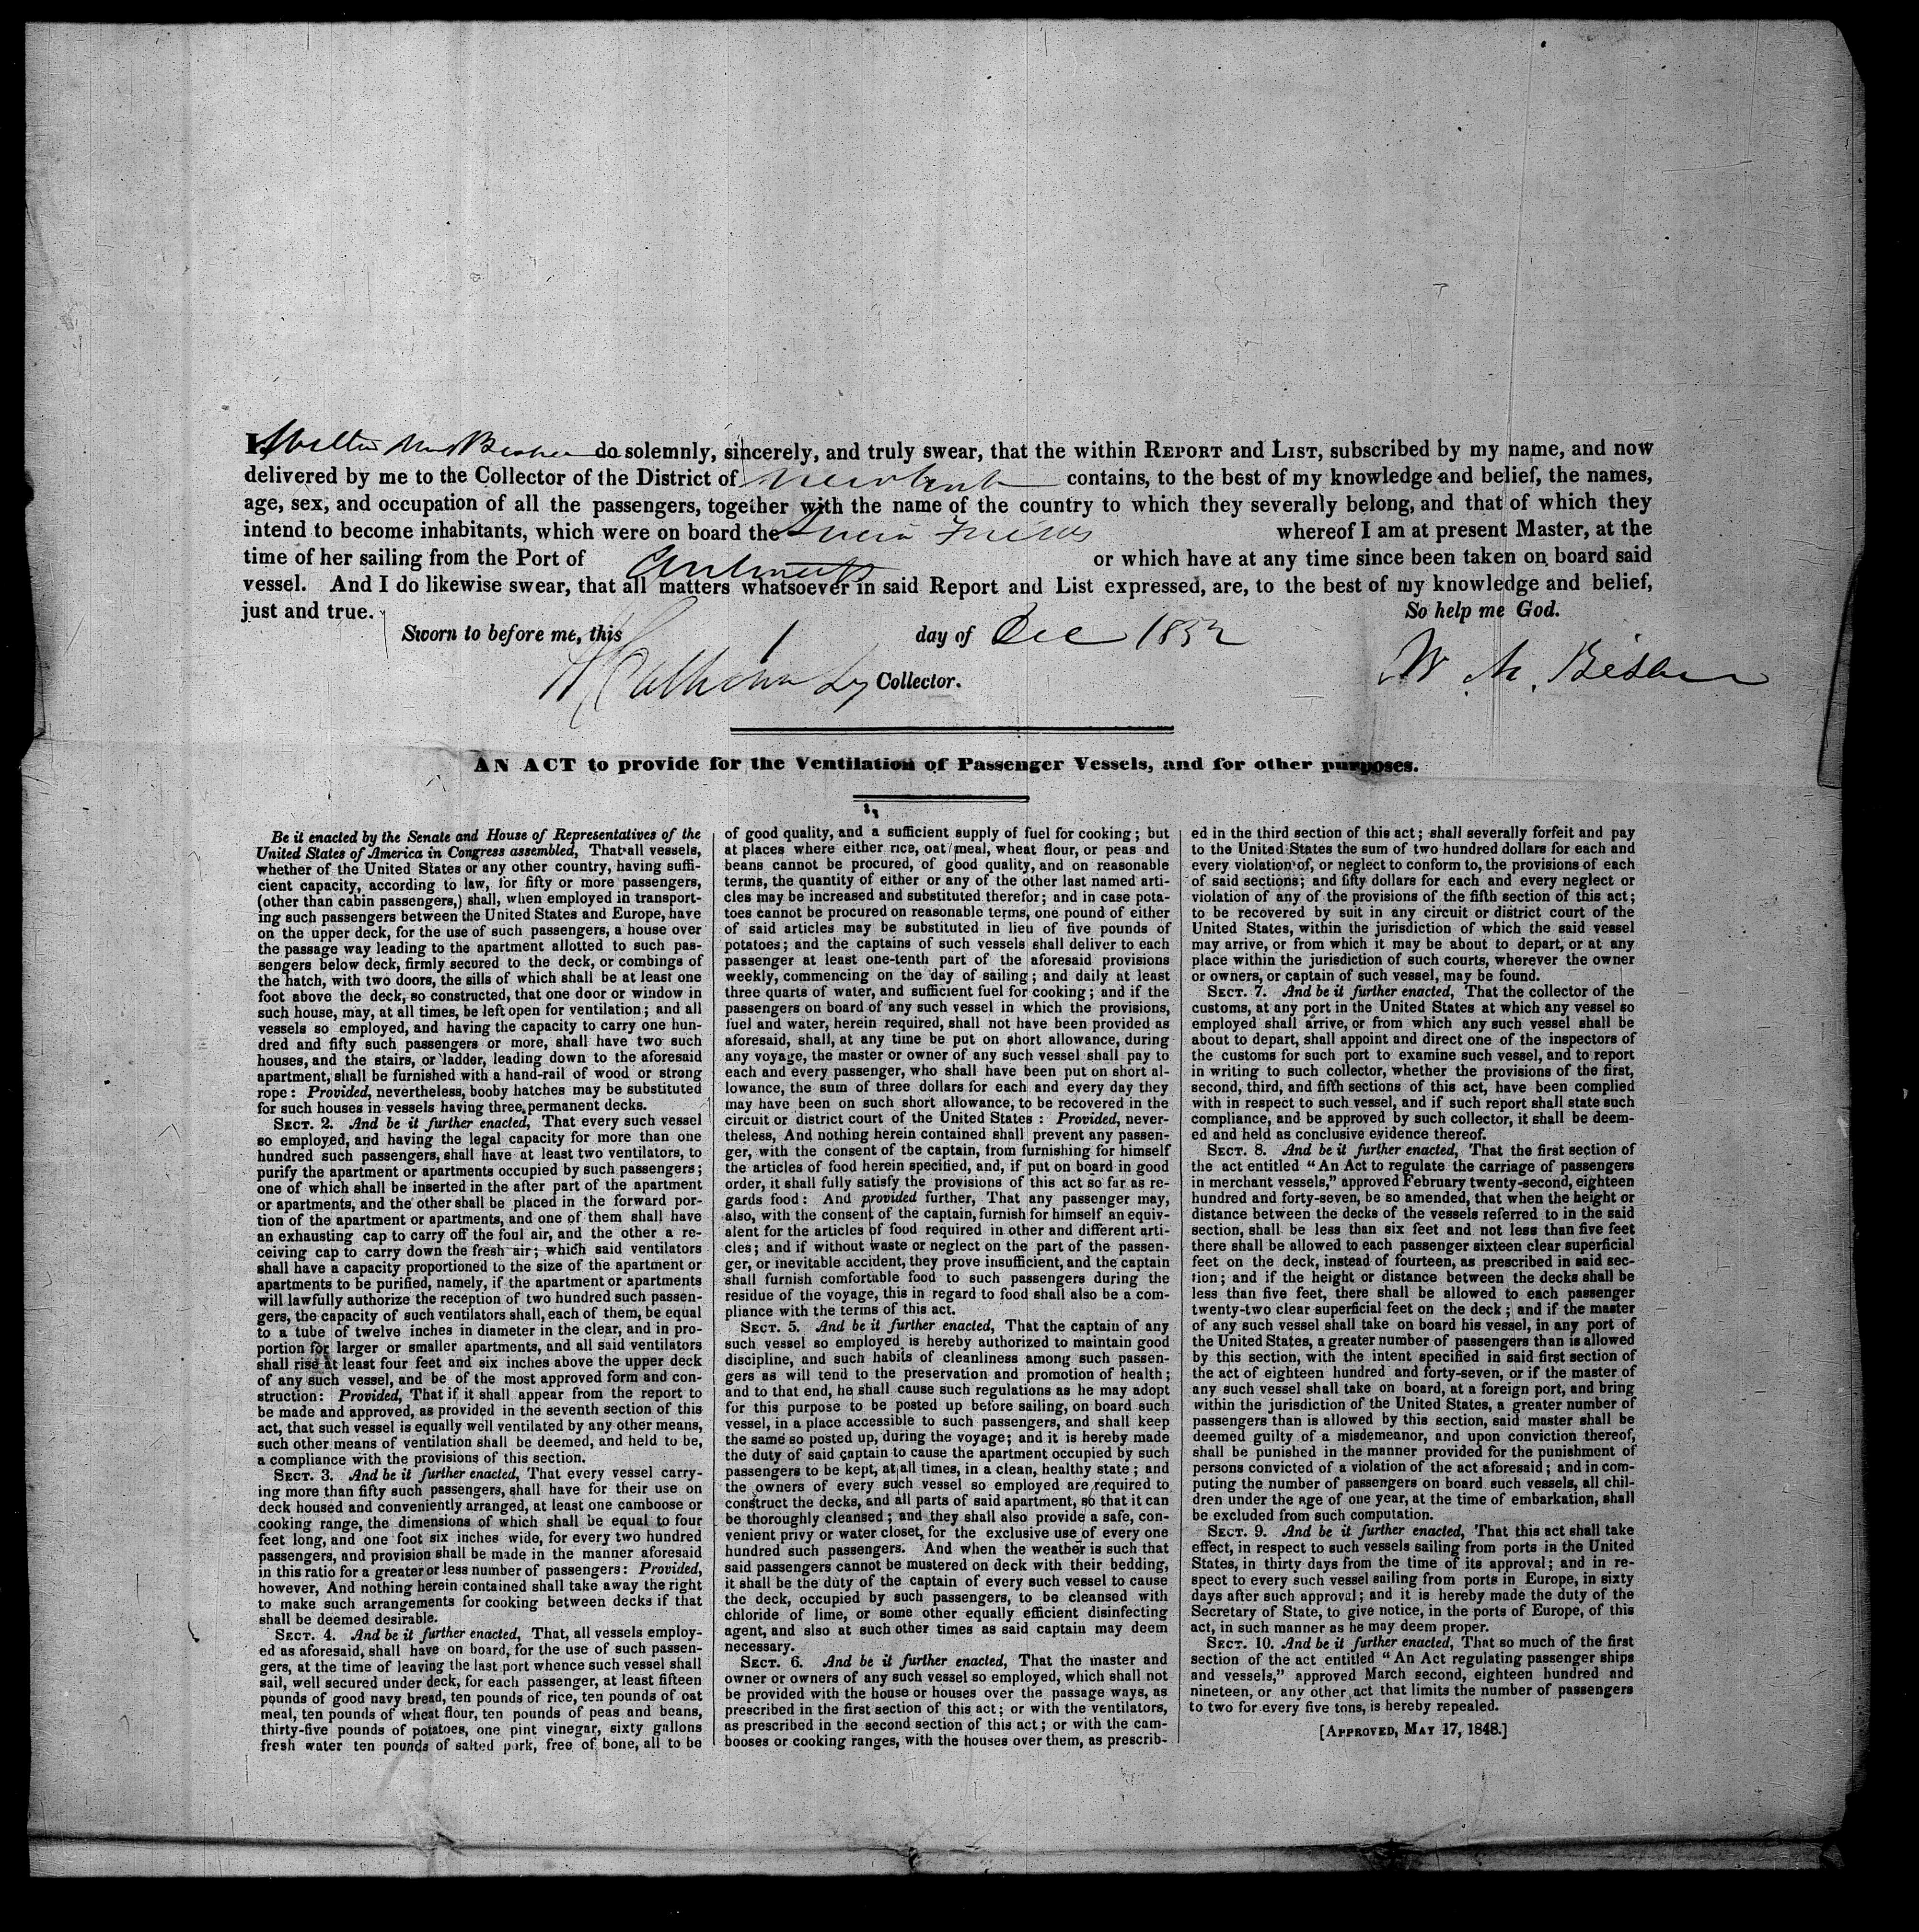 I do solemnly, sincerely, and truly swear, that the within REPORT and LIST, subscribed by my name, and now
delivered by me to the Collector of the District of contains, to the best of my knowledge and belief, the names,
age, sex, and occupation of all the passengers, together with the name of the country to which they severally belong, and that of which they
intend to become inhabitants, which were on board the whereof I am at present Master, at the
time of her sailing from the Port of or which have at any time since been taken on board said
vessel. And I do likewise swear, that all matters whatsoever in said Report and List expressed, are, to the best of my knowledge and belief,
just and true. So help me God.
Sworn to before me, this 1 day of Dec 1852
Collector.
AN ACT to provide for the Ventilation of Passenger Vessels, and for other purposes.
Be it enacted by the Senate and House of Representatives of the
United States of America in Congress assembled, That all vessels,
whether of the United States or any other country, having suffi-
cient capacity, according to law, for fifty or more passengers,
(other than cabin passengers,) shall, when employed in transport-
ing such passengers between the United States and Europe, have
on the upper deck, for the use of such passengers, a house over
the passage way leading to the apartment allotted to such pas-
sengers below deck, firmly secured to the deck, or combings of
the hatch, with two doors, the sills of which shall be at least one
foot above the deck, so constructed, that one door or window in
such house, may, at all times, be left open for ventilation; and all
vessels so employed, and having the capacity to carry one hun-
dred and fifty such passengers or more, shall have two such
houses, and the stairs, or ladder, leading down to the aforesaid
apartment, shall be furnished with a hand-rail of wood or strong
rope: Provided, nevertheless, booby hatches may be substituted
for such houses in vessels having three permanent decks.
SECT. 2. And be it further enacted, That every such vessel
so employed, and having the legal capacity for more than one
hundred such passengers, shall have at least two ventilators, to
purify the apartment or apartments occupied by such passengers;
one of which shall be inserted in the after part of the apartment
or apartments, and the other shall be placed in the forward por-
tion of the apartment or apartments, and one of them shall have
an exhausting cap to carry off the foul air, and the other a re-
ceiving cap to carry down the fresh air; which said ventilators
shall have a capacity proportioned to the size of the apartment or
apartments to be purified, namely, if the apartment or apartments
will lawfully authorize the reception of two hundred such passen-
gers, the capacity of such ventilators shall, each of them, be equal
to a tube of twelve inches in diameter in the clear, and in pro-
portion for larger or smaller apartments, and all said ventilators
shall rise at least four feet and six inches above the upper deck
of any such vessel, and be of the most approved form and con-
struction: Provided, That if it shall appear from the report to
be made and approved, as provided in the seventh section of this
act, that such vessel is equally well ventilated by any other means,
such other means of ventilation shall be deemed, and held to be,
a compliance with the provisions of this section.
SECT. 3. And be it further enacted, That every vessel carry-
ing more than fifty such passengers, shall have for their use on
deck housed and conveniently arranged, at least one camboose or
cooking range, the dimensions of which shall be equal to four
feet long, and one foot six inches wide, for every two hundred
passengers, and provision shall be made in the manner aforesaid
in this ratio for a greater or less number of passengers: Provided,
however, And nothing herein contained shall take away the right
to make such arrangements for cooking between decks if that
shall be deemed desirable.
SECT. 4. And be it further enacted, That, all vessels employ-
ed as aforesaid, shall have on board, for the use of such passen-
gers, at the time of leaving the last port whence such vessel shall
sail, well secured under deck, for each passenger, at least fifteen
pounds of good navy bread, ten pounds of rice, ten pounds of oat
meal, ten pounds of wheat flour, ten pounds of peas and beans,
thirty-five pounds of potatoes, one pint vinegar, sixty gallons
fresh water ten pounds of salted pork, free of bone, all to be
of good quality, and a sufficient supply of fuel for cooking; but
at places where either rice, oat meal, wheat flour, or peas and
beans cannot be procured, of good quality, and on reasonable
terms, the quantity of either or any of the other last named arti-
cles may be increased and substituted therefor; and in case pota-
toes cannot be procured on reasonable terms, one pound of either
of said articles may be substituted in lieu of five pounds of
potatoes; and the captains of such vessels shall deliver to each
passenger at least one-tenth part of the aforesaid provisions
weekly, commencing on the day of sailing; and daily at least
three quarts of water, and sufficient fuel for cooking; and if the
passengers on board of any such vessel in which the provisions,
fuel and water, herein required, shall not have been provided as
aforesaid, shall, at any time be put on short allowance, during
any voyage, the master or owner of any such vessel shall pay to
each and every passenger, who shall have been put on short al-
lowance, the sum of three dollars for each and every day they
may have been on such short allowance, to be recovered in the
circuit or district court of the United States: Provided, never-
theless, And nothing herein contained shall prevent any passen-
ger, with the consent of the captain, from furnishing for himself
the articles of food herein specified, and, if put on board in good
order, it shall fully satisfy the provisions of this act so far as re-
gards food: And provided further, That any passenger may,
also, with the consent of the captain, furnish for himself an equiv-
alent for the articles of food required in other and different arti-
cles; and if without waste or neglect on the part of the passen-
ger, or inevitable accident, they prove insufficient, and the captain
shall furnish comfortable food to such passengers during the
residue of the voyage, this in regard to food shall also be a com-
pliance with the terms of this act.
SECT. 5. And be it further enacted, That the captain of any
such vessel so employed is hereby authorized to maintain good
discipline, and such habits of cleanliness among such passen-
gers as will tend to the preservation and promotion of health;
and to that end, he shall cause such regulations as he may adopt
for this purpose to be posted up before sailing, on board such
vessel, in a place accessible to such passengers, and shall keep
the same so posted up, during the voyage; and it is hereby made
the duty of said captain to cause the apartment occupied by such
passengers to be kept, at all times, in a clean, healthy state; and
the owners of every such vessel so employed are required to
construct the decks, and all parts of said apartment, so that it can
be thoroughly cleansed; and they shall also provide a safe, con-
venient privy or water closet, for the exclusive use of every one
hundred such passengers. And when the weather is such that
said passengers cannot be mustered on deck with their bedding,
it shall be the duty of the captain of every such vessel to cause
the deck, occupied by such passengers, to be cleansed with
chloride of lime, or some other equally efficient disinfecting
agent, and also at such other times as said captain may deem
necessary.
SECT. 6. And be it further enacted, That the master and
owner or owners of any such vessel so employed, which shall not
be provided with the house or houses over the passage ways, as
prescribed in the first section of this act; or with the ventilators,
as prescribed in the second section of this act; or with the cam-
booses or cooking ranges, with the houses over them, as prescrib-
ed in the third section of this act; shall severally forfeit and pay
to the United States the sum of two hundred dollars for each and
every violation of, or neglect to conform to, the provisions of each
of said sections; and fifty dollars for each and every neglect or
violation of any of the provisions of the fifth section of this act;
to be recovered by suit in any circuit or district court of the
United States, within the jurisdiction of which the said vessel
may arrive, or from which it may be about to depart, or at any
place within the jurisdiction of such courts, wherever the owner
or owners, or captain of such vessel, may be found.
SECT. 7. And be it further enacted, That the collector of the
customs, at any port in the United States at which any vessel so
employed shall arrive, or from which any such vessel shall be
about to depart, shall appoint and direct one of the inspectors of
the customs for such port to examine such vessel, and to report
in writing to such collector, whether the provisions of the first,
second, third, and fifth sections of this act, have been complied
with in respect to such vessel, and if such report shall state such
compliance, and be approved by such collector, it shall be deem-
ed and held as conclusive evidence thereof.
SECT. 8. And be it further enacted, That the first section of
the act entitled "An Act to regulate the carriage of passengers
in merchant vessels," approved February twenty-second, eighteen
hundred and forty-seven, be so amended, that when the height or
distance between the decks of the vessels referred to in the said
section, shall be less than six feet and not less than five feet
there shall be allowed to each passenger sixteen clear superficial
feet on the deck, instead of fourteen, as prescribed in said sec-
tion; and if the height or distance between the decks shall be
less than five feet, there shall be allowed to each passenger
twenty-two clear superficial feet on the deck; and if the master
of any such vessel shall take on board his vessel, in any port of
the United States, a greater number of passengers than is allowed
by this section, with the intent specified in said first section of
the act of eighteen hundred and forty-seven, or if the master of
any such vessel shall take on board, at a foreign port, and bring
within the jurisdiction of the United States, a greater number of
passengers than is allowed by this section, said master shall be
deemed guilty of a misdemeanor, and upon conviction thereof,
shall be punished in the manner provided for the punishment of
persons convicted of a violation of the act aforesaid; and in com-
puting the number of passengers on board such vessels, all chil-
dren under the age of one year, at the time of embarkation, shall
be excluded from such computation.
SECT. 9. And be it further enacted, That this act shall take
effect, in respect to such vessels sailing from ports in the United
States, in thirty days from the time of its approval; and in re-
spect to every such vessel sailing from ports in Europe, in sixty
days after such approval; and it is hereby made the duty of the
Secretary of State, to give notice, in the ports of Europe, of this
act, in such manner as he may deem proper.
SECT. 10. And be it further enacted, That so much of the first
section of the act entitled "An Act regulating passenger ships
and vessels," approved March second, eighteen hundred and
nineteen, or any other act that limits the number of passengers
to two for every five tons, is hereby repealed.
[APPROVED, MAY 17, 1848.]